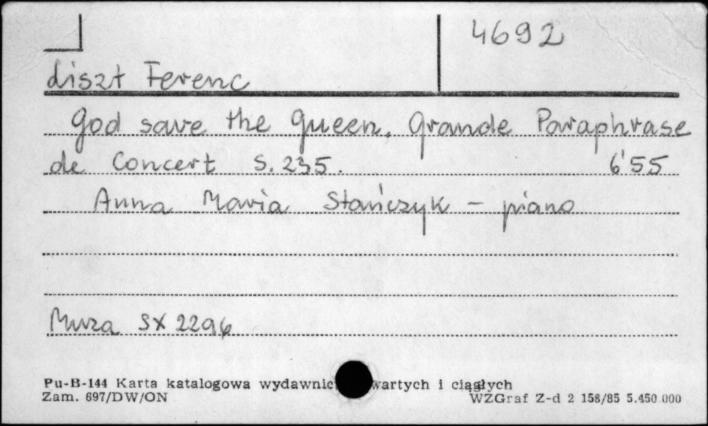 4692
Liszt Ferenc
God save the Queen. Grande Paraphrase
de Concert S. 235. 6'55
Anna Maria Stańczyk - piano
Muza SX 2296
Pu-B-144 Karta katalogowa wydawnic wartych i ciągłych
Zam. 697/DW/ON WZGraf Z-d 2 158/85 5.450.000